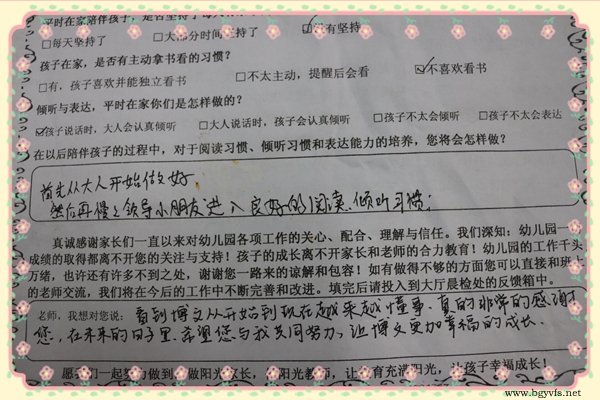 平时在家陪伴孩子，是否坚持了每天
□每天坚持了 □大部分时间坚持了 ☑没有坚持
孩子在家，是否有主动拿书看的习惯？
□有，孩子喜欢并能独立看书 □不太主动，提醒后会看 ☑不喜欢看书
倾听与表达，平时在家你们是怎样做的？
☑孩子说话时，大人会认真倾听 □大人说话时，孩子会认真倾听 □孩子不太会倾听 □孩子不太会表达
在以后陪伴孩子的过程中，对于阅读习惯、倾听习惯和表达能力的培养，您将会怎样做？
首先从大人开始做好，
然后再慢之领导小朋友进入良好的阅读、倾听习惯；
真诚感谢家长们一直以来对幼儿园各项工作的关心、配合、理解与信任。我们深知：幼儿园一
成绩的取得都离不开您的关注与支持！孩子的成长离不开家长和老师的合力教育！幼儿园的工作千头
万绪，也许还有许多不到之处，谢谢您一路来的谅解和包容！如有做得不够的方面您可以直接和班上
的老师交流，我们将在今后的工作中不断完善和改进。填完后请投入到大厅晨检处的反馈箱中。
老师，我想对您说：看到博文从开始到现在越来越懂事，真的非常的感谢
您，在未来的日子里，希望您与我共同努力，让博文更加幸福的成长．
愿我们一起努力做到，做阳光家长，阳光教师，让 育充满阳光，让孩子幸福成长！
www.bgyvfs.net